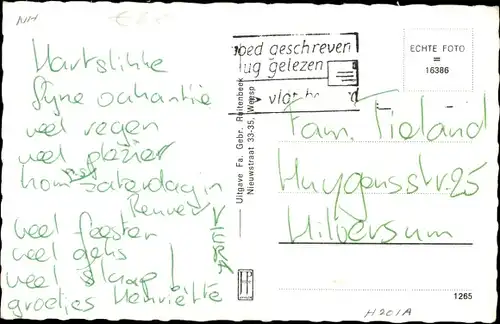 NH
Hartslikke
fijne vakantie
veel regen
veel plezier
kom pas zaterdag in
Renver
veel feesten
veel gens
veel slaap!
groetjes Henriëtte
VERA
Uitgave Fa. Gebr. Ruitenbeek
Nieuwstraat 33-35, Weesp
oed geschreven
lug gelezen
vlot be
ECHTE FOTO
=
16386
Fam. Tieland
Huygensstr. 25
Hilversum
1265
H201A